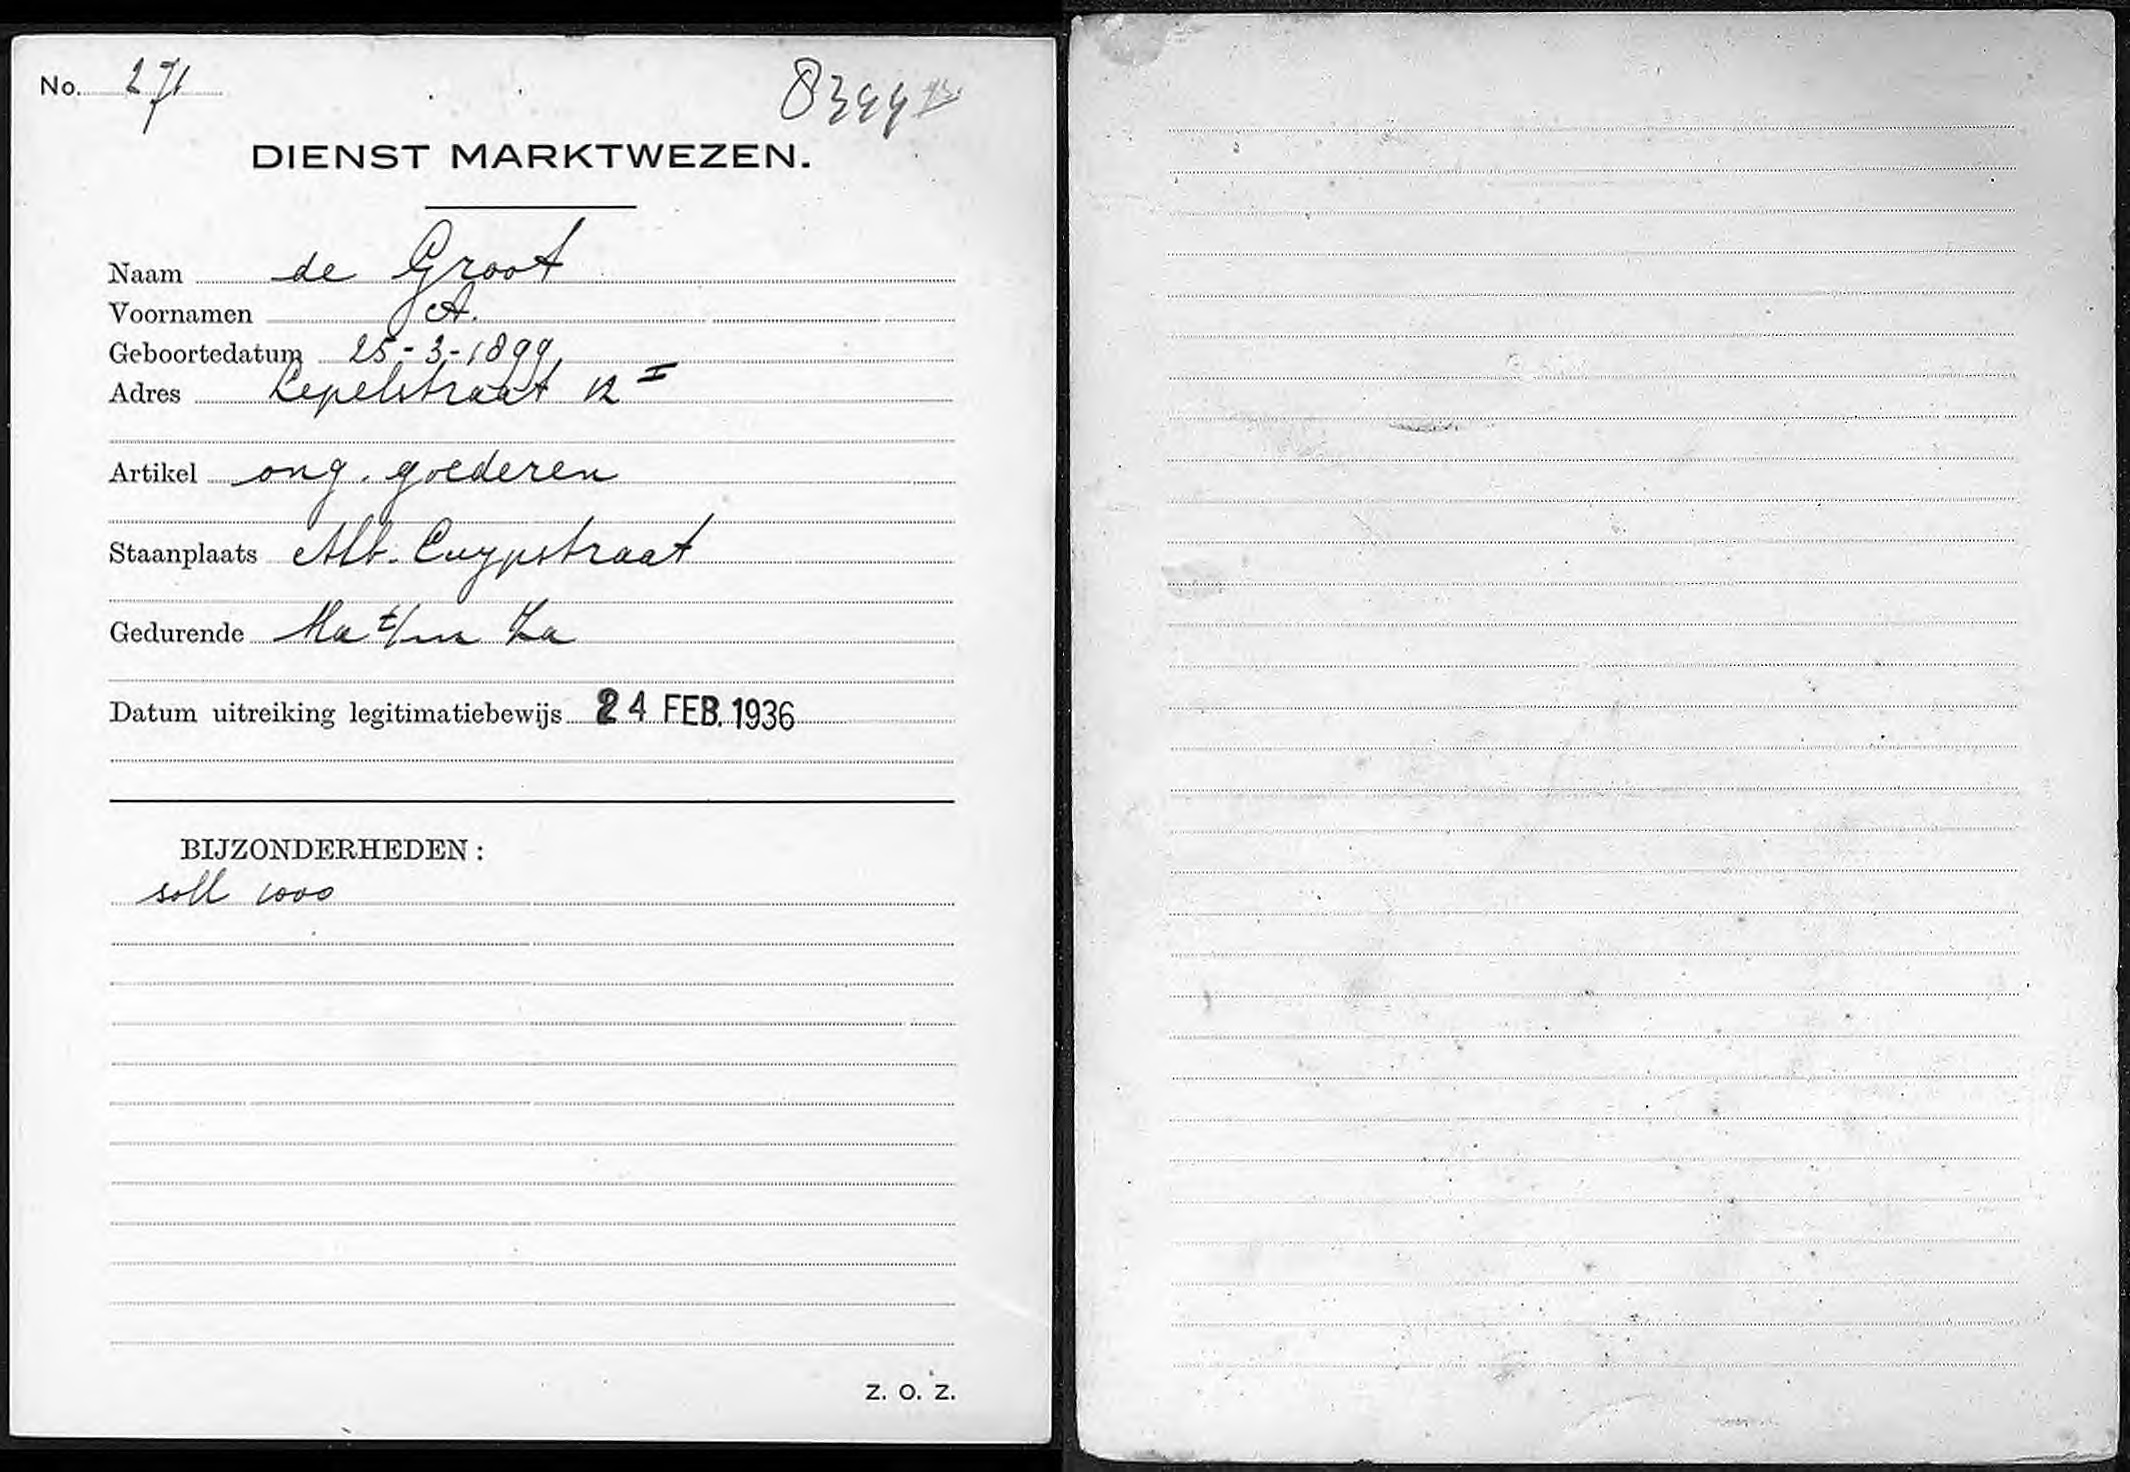 No. 271
8399
DIENST MARKTWEZEN.
Naam de Groot
Voornamen A.
Geboortedatum 25-3-1899
Adres Lepelstraat 12 I
Artikel ong. goederen
Staanplaats Alb. Cuypstraat
Gedurende Ma t/m Za
Datum uitreiking legitimatiebewijs 24 FEB. 1936
BIJZONDERHEDEN:
soll 1000
Z. O. Z.